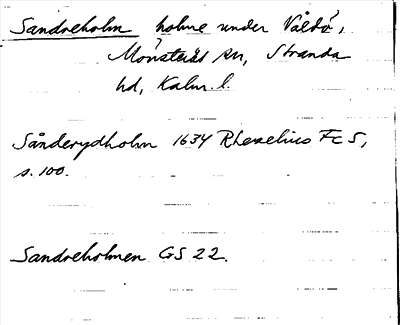 Sandreholm holme under Våldö,
Mönsterås sn, Stranda
hd, Kalm. l.
Sånderydholm 1634 Rhezelius Fc 5,
s. 100.
Sandreholmen GS 22.